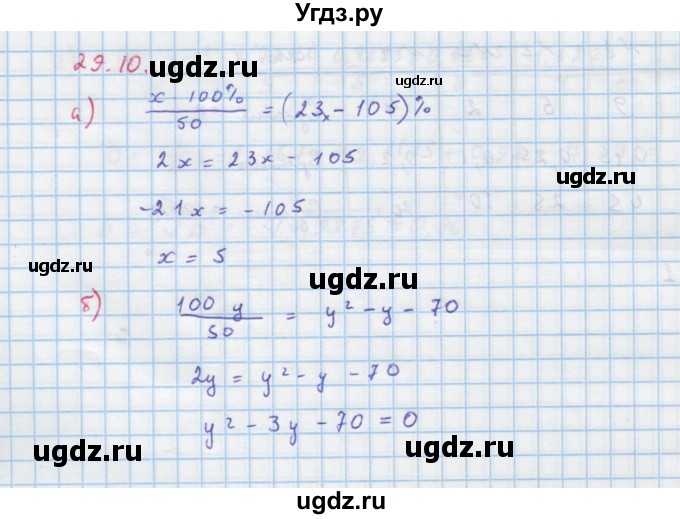 Угдз.ру
29.10.
ugdz.ru
ugdz.ru
а) x 100% / 50 = (23x - 105)%
2x = 23x - 105
ugdz.ru
-21x = -105
ugdz.ru
x = 5
ugdz.ru
б) 100 y / 50 = y² - y - 70
ugdz.ru
2y = y² - y - 70
y² - 3y - 70 = 0
ugdz.ru
ugdz.ru
ugdz.ru
ugdz.ru